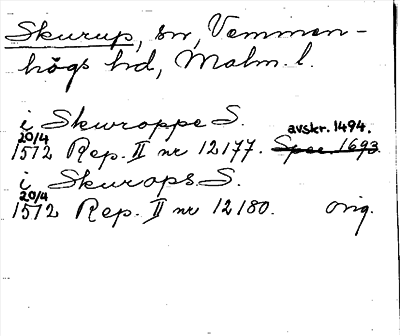 Skurup, sn, Vemmen-
högs hd, Malm. l.
i Skurroppe S.
avskr. 1494.
20/4
1572 Rep. II nr 12177. Spec 1693
i Skurops S.
20/4
1572 Rep. II nr 12180. orig.